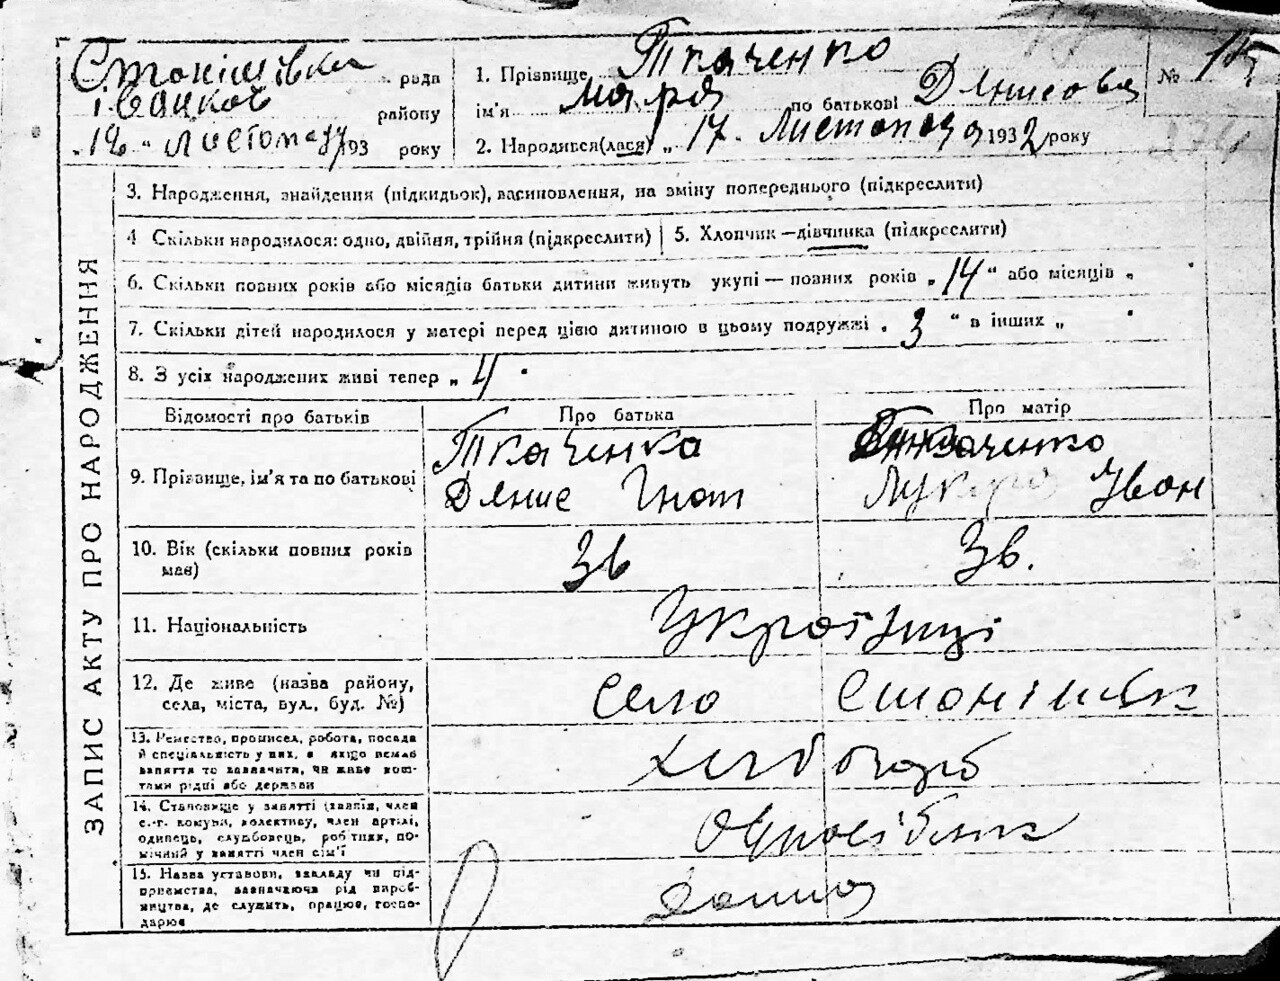 Станішівка рада
Іванков району
„18“ Листопад 193 року
1. Прізвище Ткаченко
ім'я Мара по батькові Денисова
2. Народився(лася) „17. Листопада 1932 року
№ 15
274
ЗАПИС АКТУ ПРО НАРОДЖЕННЯ
3. Народження, знайдення (підкидьок), всиновлення, на зміну попереднього (підкреслити)
4 Скільки народилося: одно, двійня, трійня (підкреслити)
5. Хлопчик—дівчинка (підкреслити)
6. Скільки повних років або місяців батьки дитини живуть укупі — повних років „14“ або місяців „
7. Скільки дітей народилося у матері перед цією дитиною в цьому подружжі „3“ в інших „
8. З усіх народжених живі тепер „4
Відомості про батьків
Про батька
Про матір
9. Прізвище, ім'я та по батькові
Ткаченка
Денис Гнат
Ткаченко
Лукера Іван
10. Вік (скільки повних років
має)
36
36.
11. Національність
Українці
12. Де живе (назва району,
села, міста, вул., буд. №)
село Станішівк
13. Ремество, промисел, робота, посада
й спеціальність у них, а якщо немає
заняття то зазначити, чи живе кош-
тами рідні або держави
Хлібороб
14. Становище у занятті (хазяїн, член
с.-г. комуни, колективу, член артілі,
одинець, службовець, робітник, по-
мічний у занятті член сім'ї
Одноосібник
15. Назва установи, закладу чи під-
приємства, зазначаючи рід вироб-
ництва, де служить, працює, госпо-
дарює